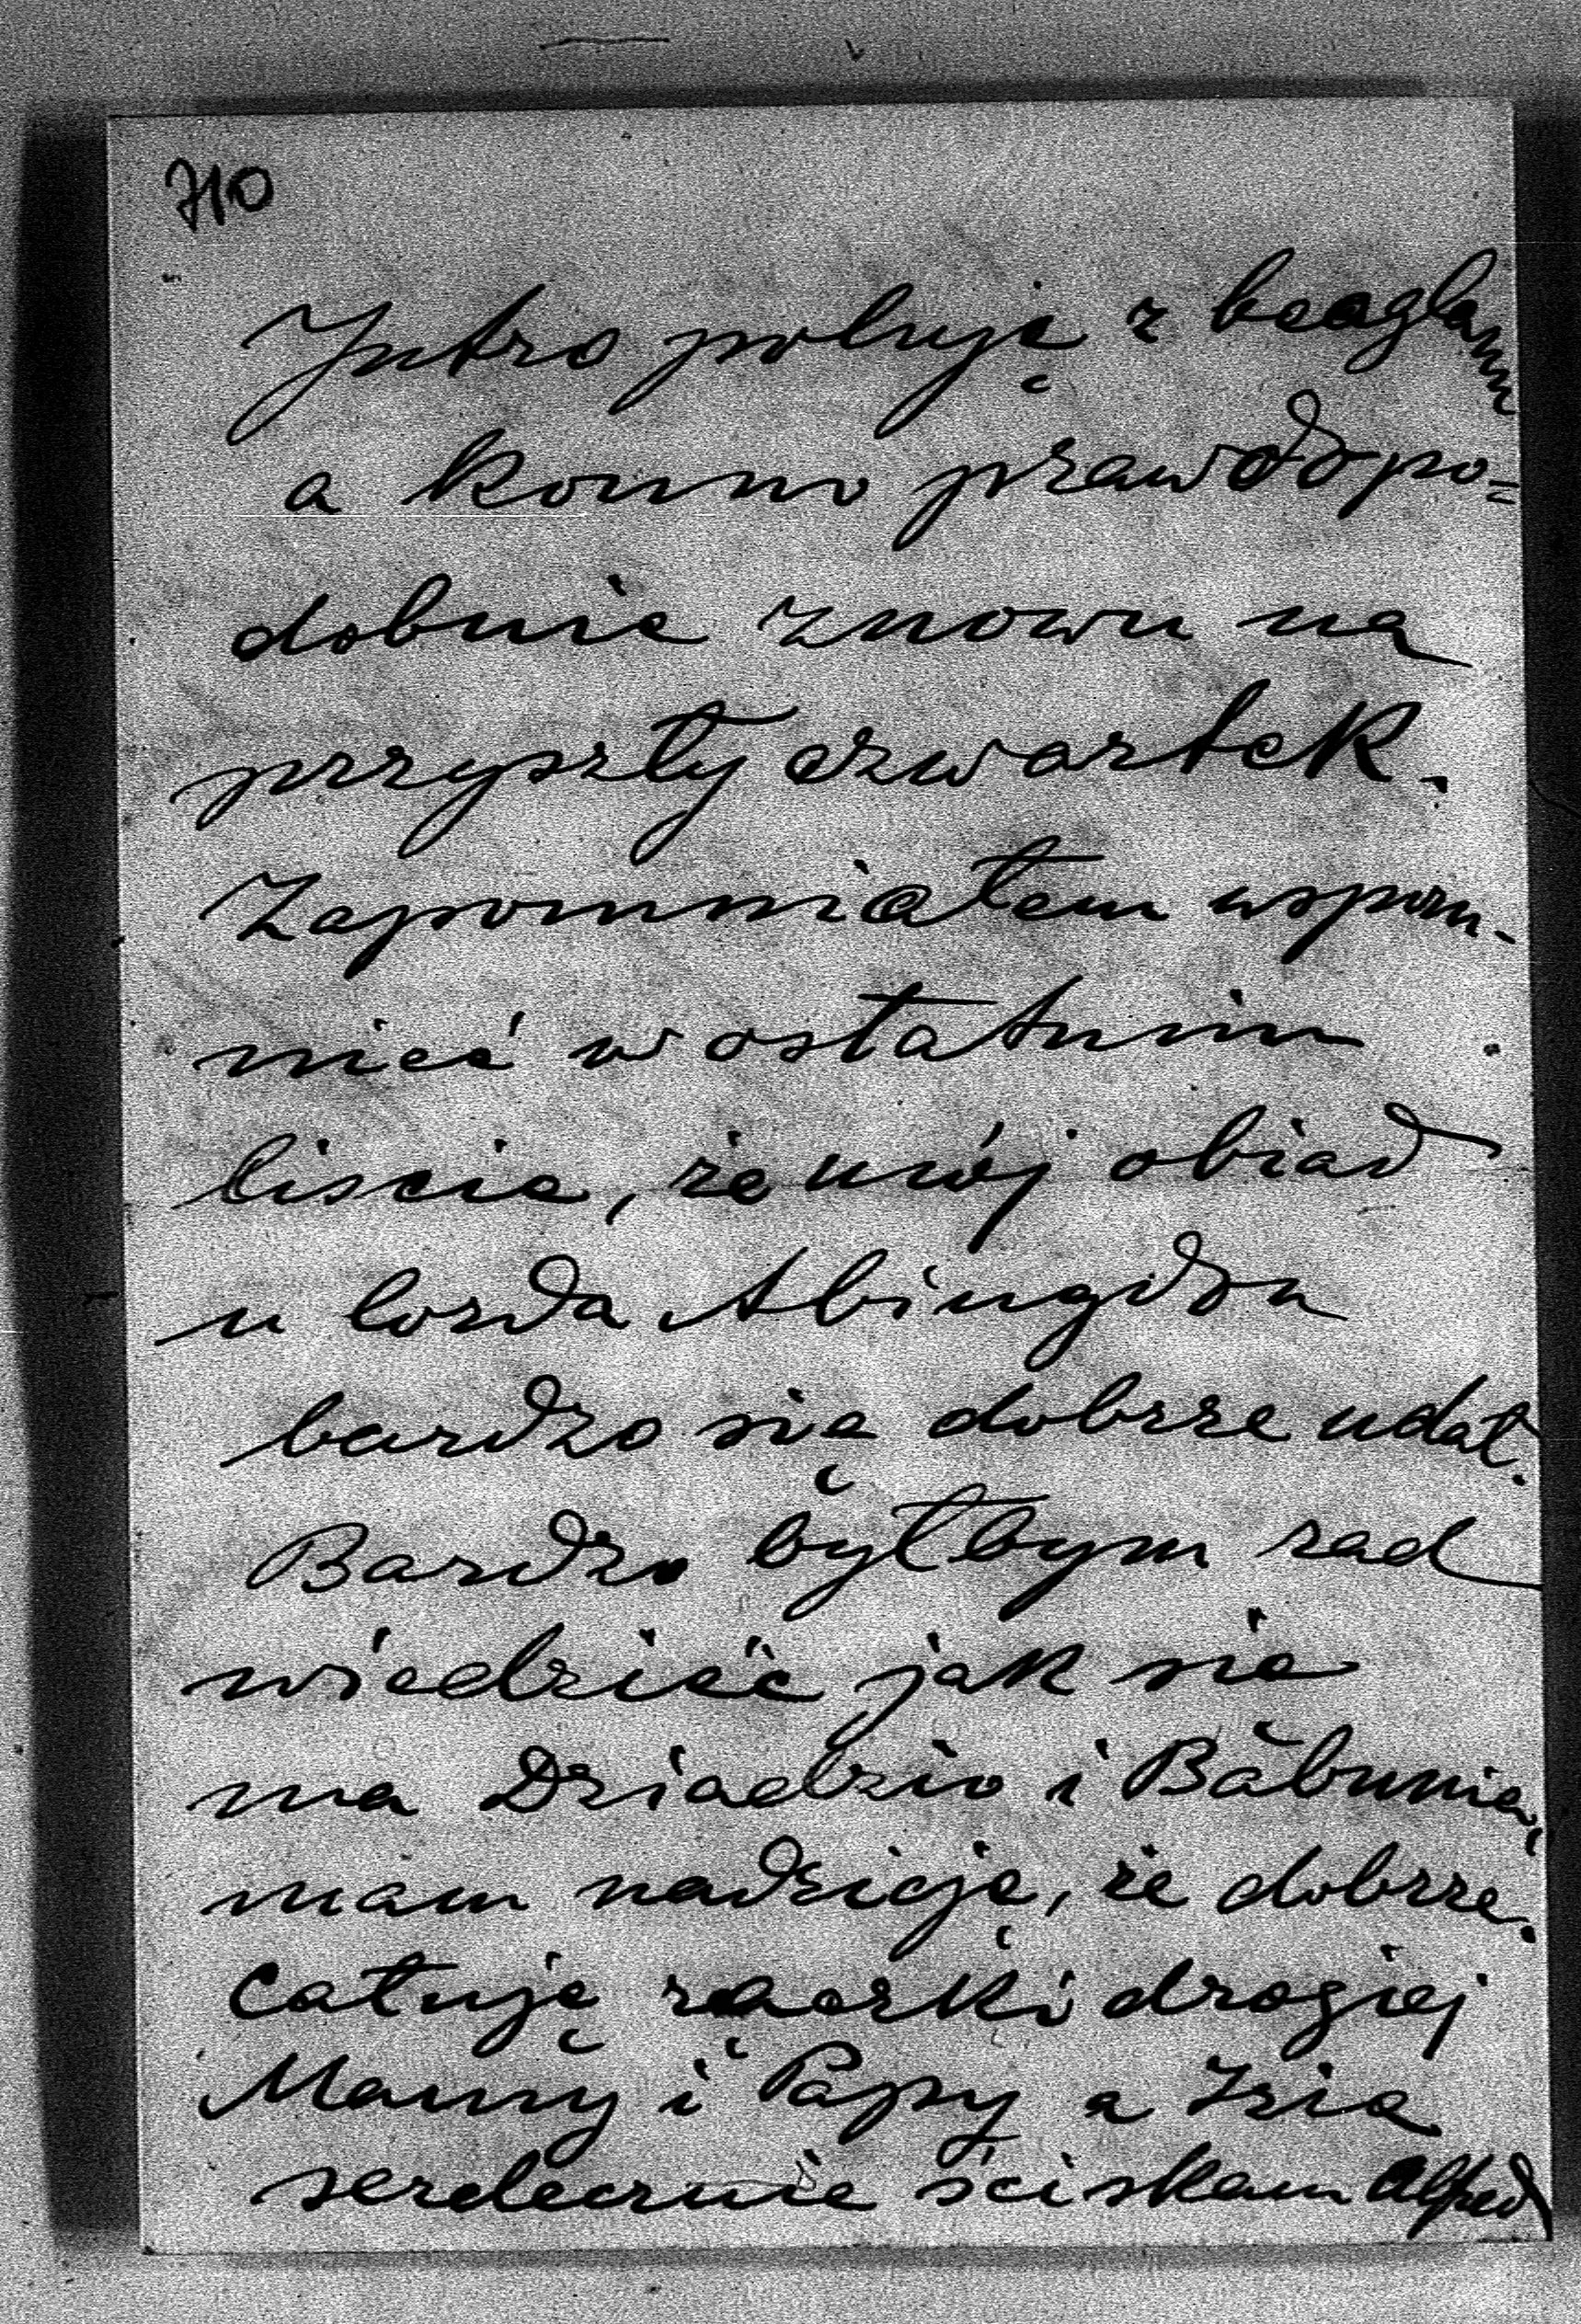 710
Jutro poluję z beaglami
a konno prawdopo=
dobnie znowu na
przyszły czwartek.
Zapomniałem wspom-
nieć w ostatnim
liscie, że mój obiad
u lorda Abingdon
bardzo się dobrze udał.
Bardzo byłbym rad
wiedzieć jak się
ma Dziadzio i Babunia,
mam nadzieję, że dobrze.
Całuję rączki drogiej
Mamy i Papy a Izia
serdecznie ściskam Alfred